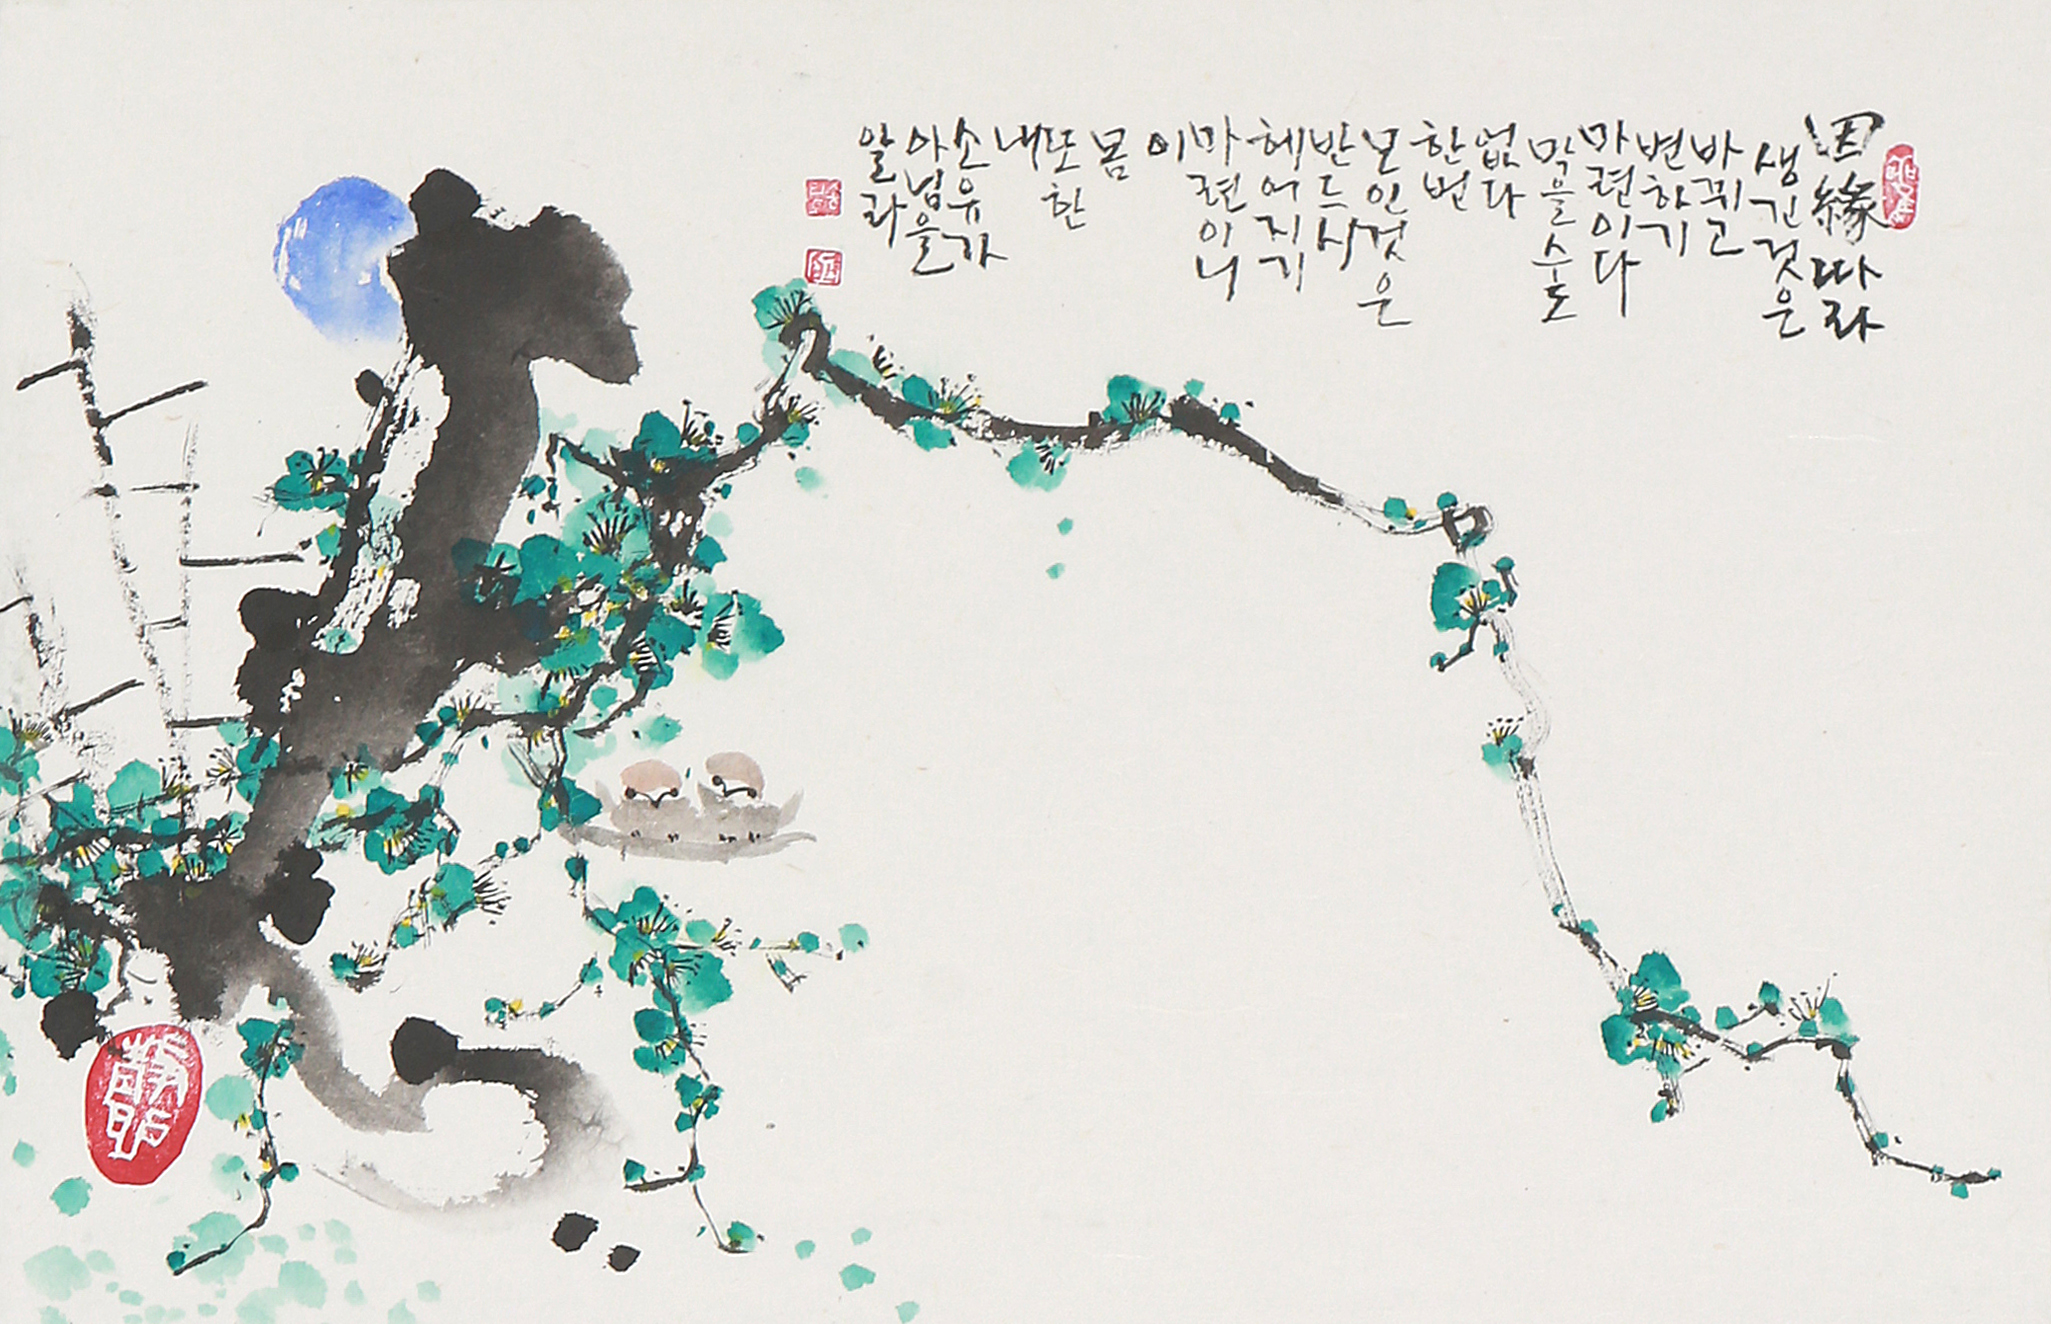 因緣따라
생긴것은
바뀌고
변하기
마련이다
막을수도
없다
한번
모인것은
반드시
헤어지기
마련이니
이
몸
또한
내
소유가
아님을
알라